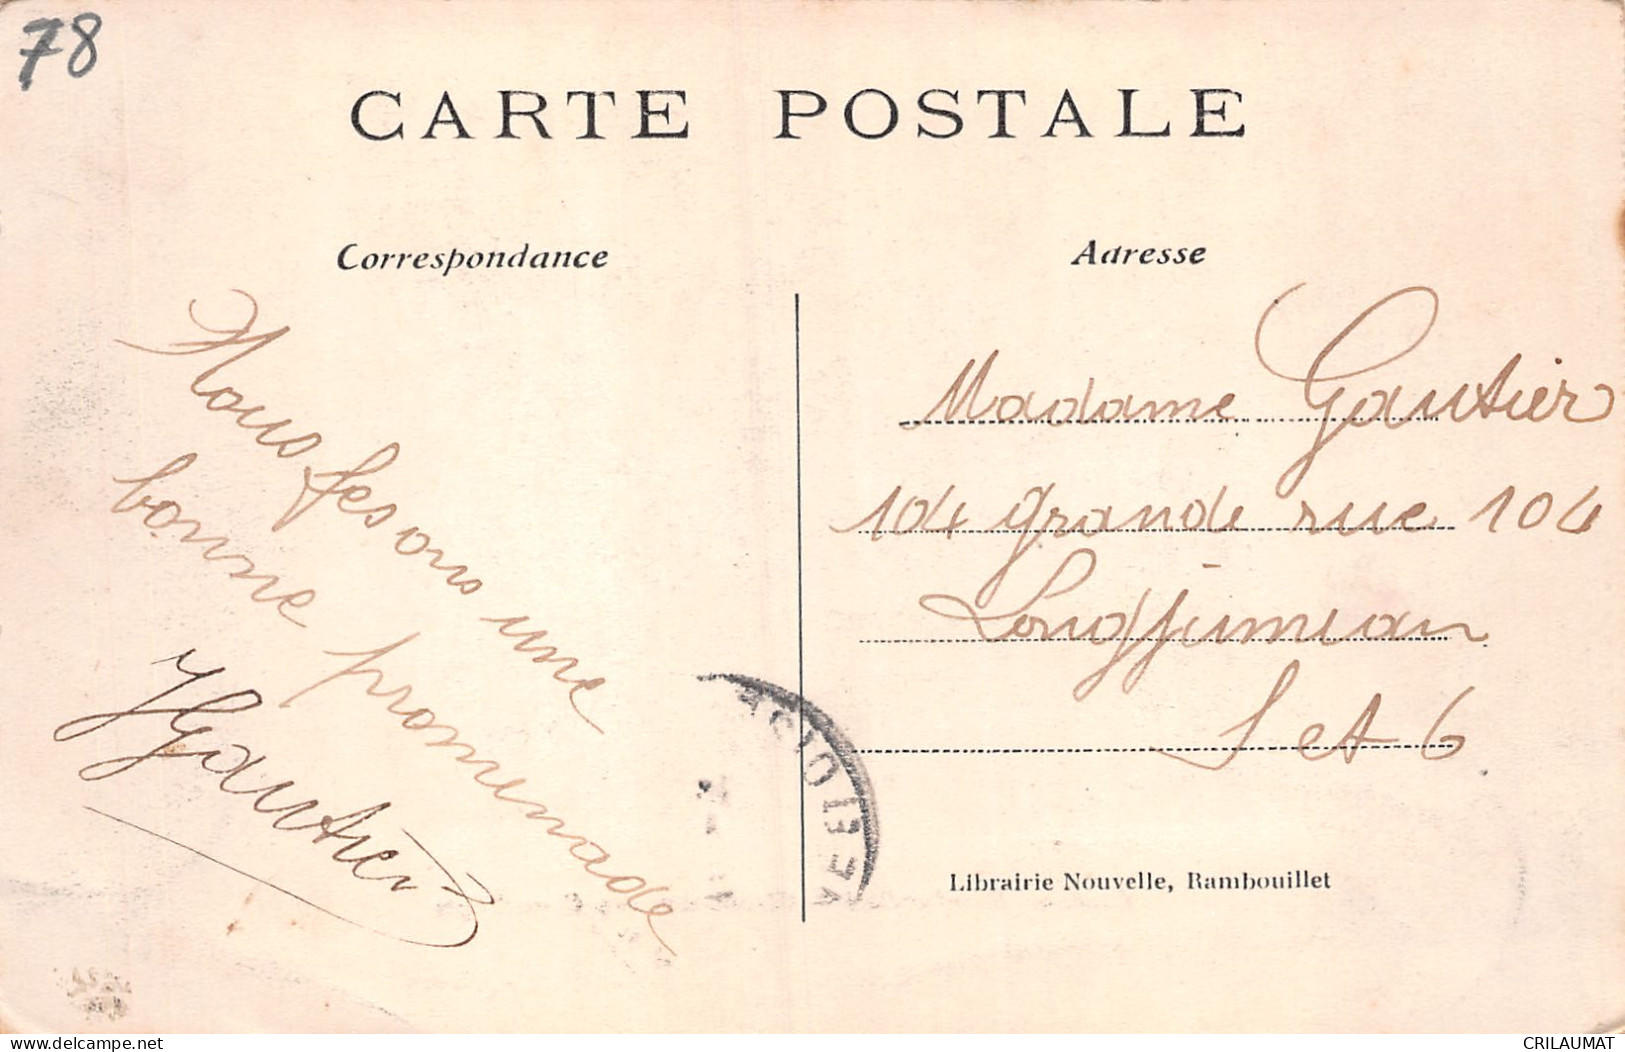 78
CARTE POSTALE
Correspondance
Nous fesons une
bonne promenade
HGautier
Adresse
Madame Gautier
104 grande rue 104
Longjumeau
S et 6
Librairie Nouvelle, Rambouillet
www.delcampe.net
CRILAUMAT